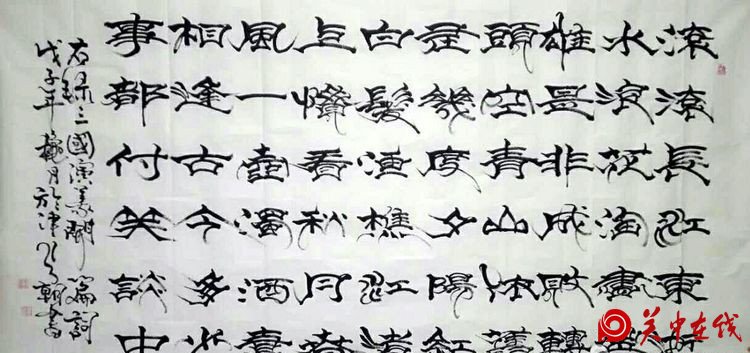 滾滾長江東逝
水浪花淘盡英
雄是非成敗轉
頭空青山依舊
在幾度夕陽紅
白髮漁樵江渚
上慣看秋月春
風一壺濁酒喜
相逢古今多少
事都付笑談中
右錄三國演義開篇詞
戊子年穐月於津朝書
关中在线